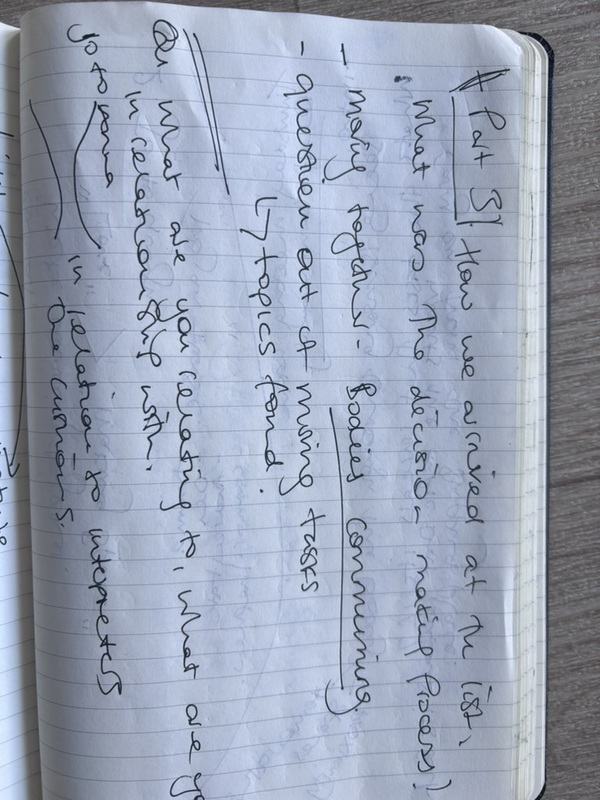 Part 3! How we arrived at the list,
What was the decision making process?
- moving together - Bodies communing
- question out of moving tasks
↳ topics found.
Q: what are you relating to, what are yo
in relationship with.
go to
in relation to interpreters
the curtains.